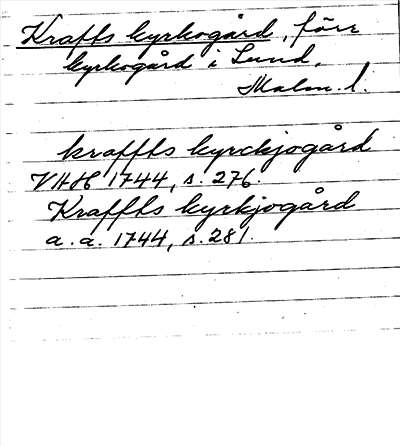 Kraffts kyrkogård, förr
kyrkogård i Lund,
Malm. l.
kraffts kyrckjogård
VHH 1744, s. 276.
Kraffts kyrkjogård
a. a. 1744, s. 281.